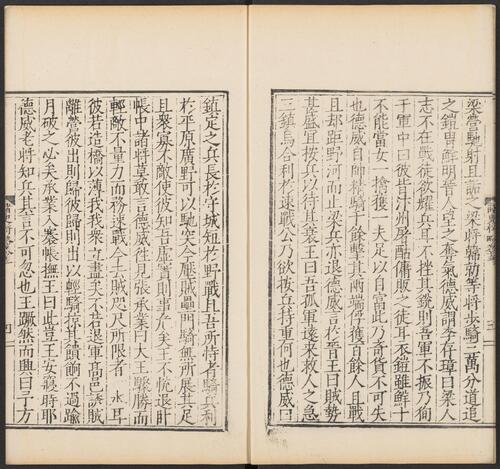 梁營馳射且詬之梁將韓勍等將步騎三萬分道追
之鎧冑鮮明晉人望之奪氣德威謂李存璋曰梁人
志不在戰徒欲耀兵耳不挫其銳則吾軍不振乃徇
于軍中曰彼皆汴州屠酤傭販之徒耳衣鎧雖鮮十
不能當女一擒獲一夫足以自富此乃奇貨不可失
也德威自帥精騎千餘擊其兩端俘獲百餘人且戰
且却距野河而止梁兵亦退德威言於晉王曰賊勢
甚盛宜按兵以待其衰王曰吾孤軍遠來救人之急
三鎮烏合利於速戰公乃欲按兵持重何也德威曰
鎮定之兵長於守城短於野戰且吾所恃者騎兵利
於平原廣野可以馳突今壓賊壘門騎無所展其足
且衆寡不敵使彼知吾虛實則事危矣王不悅退卧
帳中諸將莫敢言德威往見張承業曰大王驟勝而
輕敵不量力而務速戰今去賊咫尺所限者一水耳
彼若造橋以薄我我衆立盡矣不若退軍高邑誘賊
離營彼出則歸彼歸則出以輕騎掠其饋餉不過踰
月破之必矣承業入褰帳撫王曰此豈王安寢時耶
德威老將知兵其言不可忽也王蹶然而興曰予方